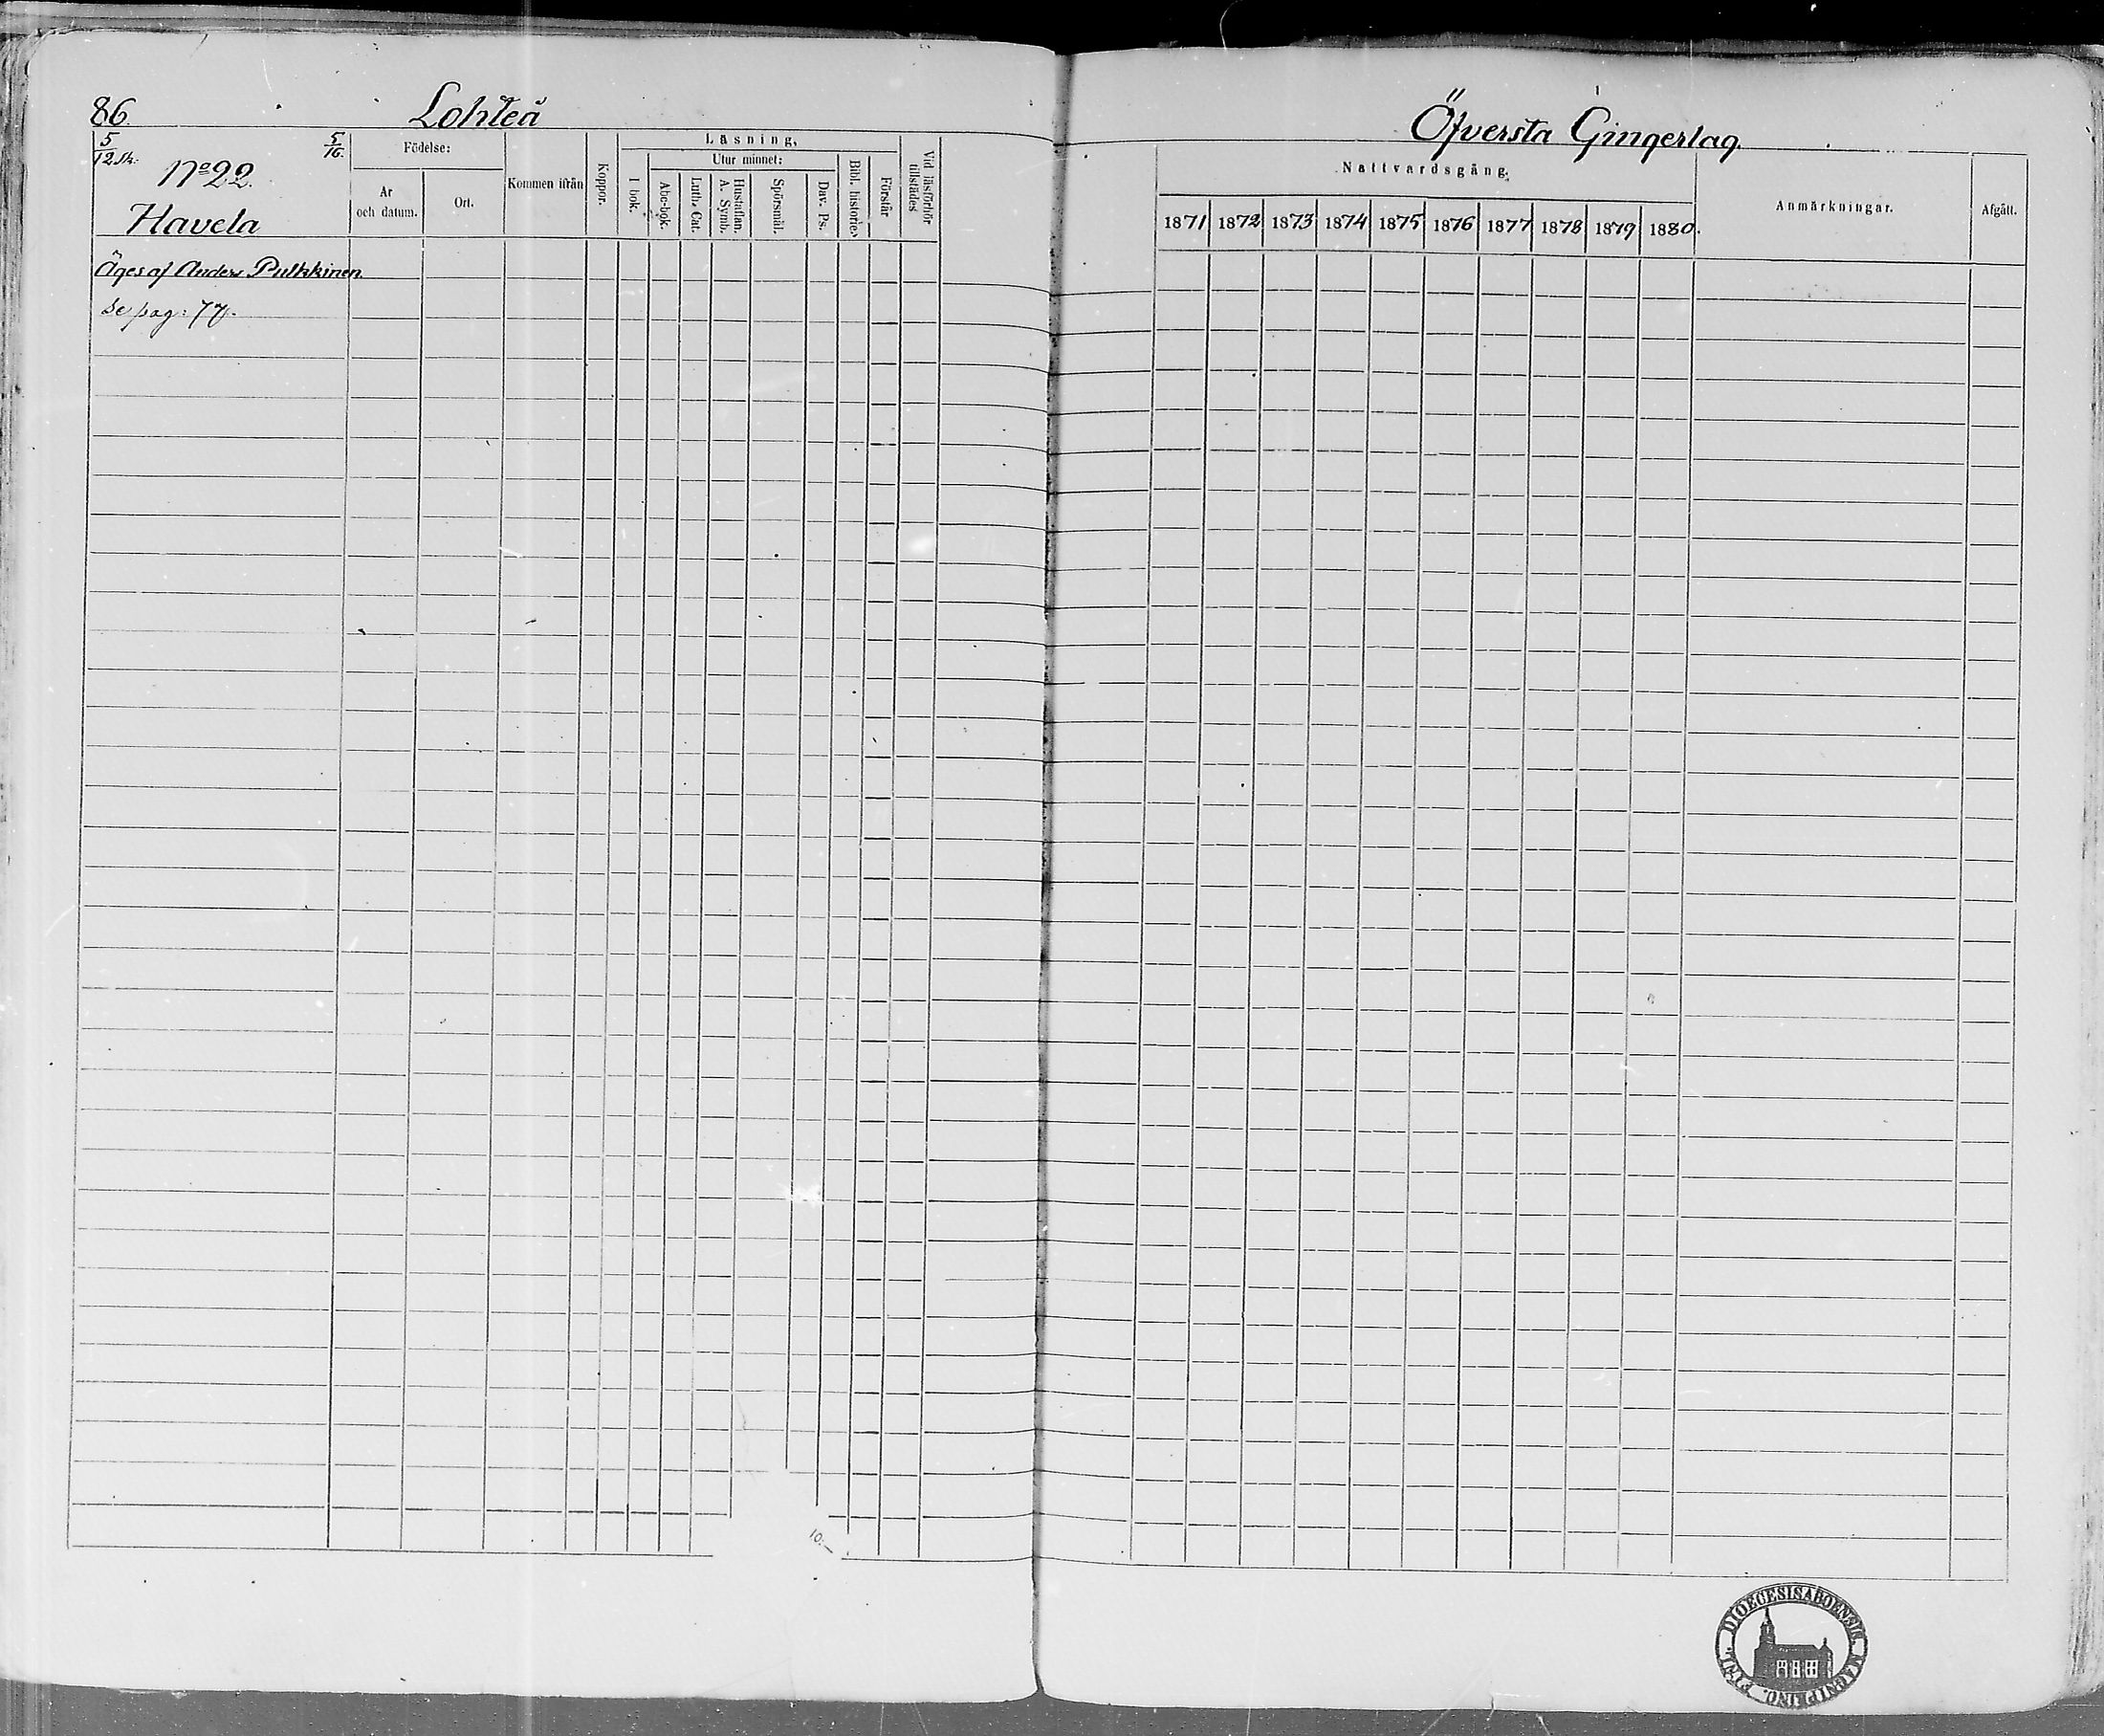 86. Lohteå
5/12 sk. 5/16.
No 22.
Havela
Födelse:
År och datum.
Ort.
Kommen ifrån
Koppor.
Läsning.
I bok.
Utur minnet:
Abc-bok.
Luth. Cat.
Hustaflan. A. Symb.
Spörsmål.
Dav. Ps.
Bibl. historie.
Förstår
Vid läsförhör tillstädes
Äges af Anders Pulkkinen
se pag: 77.
10.
Öfversta Gingerlag
Nattvardsgång.
1871 1872 1873 1874 1875 1876 1877 1878 1879 1880.
Anmärkningar.
Afgått.
DIOECESIS ABOENSIS MAGNI PRINC. FINL.